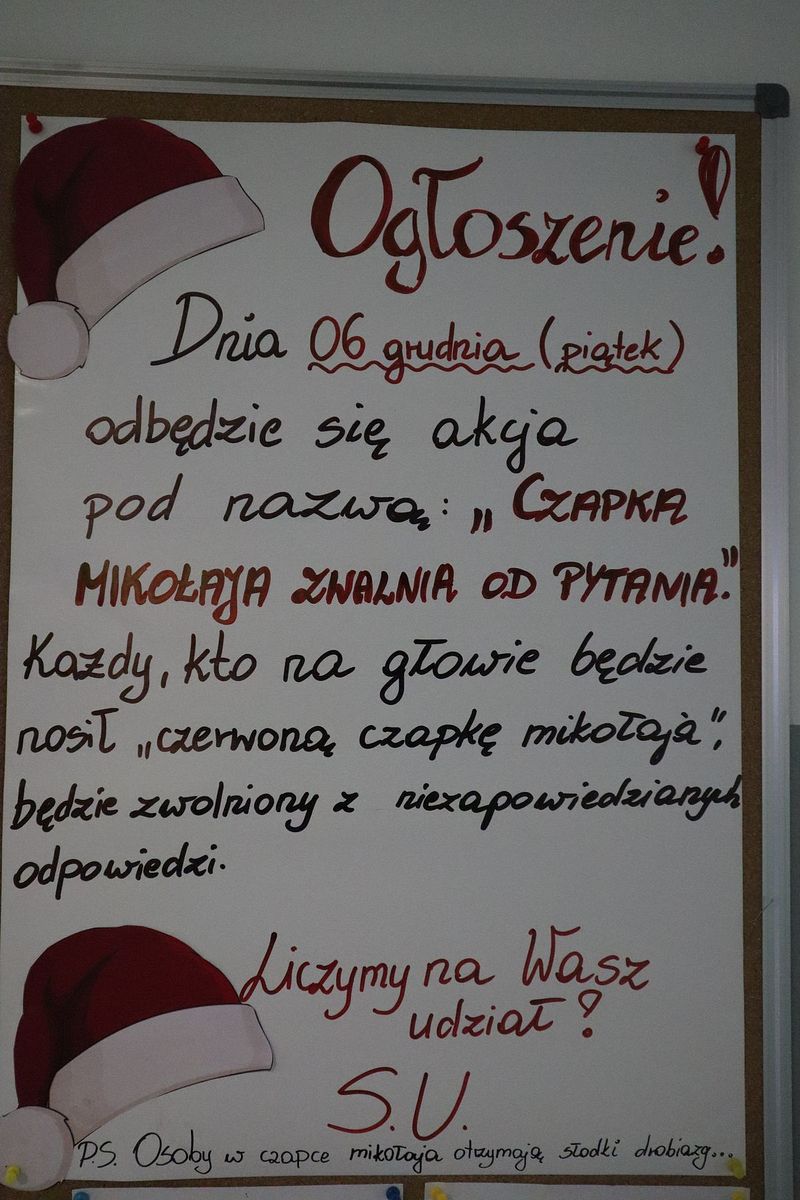 Ogłoszenie!
Dnia 06 grudnia (piątek)
odbędzie się akcja
pod nazwą: „CZAPKA
MIKOŁAJA ZWALNIA OD PYTANIA."
Każdy, kto na głowie będzie
nosił „czerwoną czapkę mikołaja",
będzie zwolniony z niezapowiedzianych
odpowiedzi.
Liczymy na Wasz
udział?
S.U.
P.S. Osoby w czapce mikołaja otrzymają słodki drobiazg...